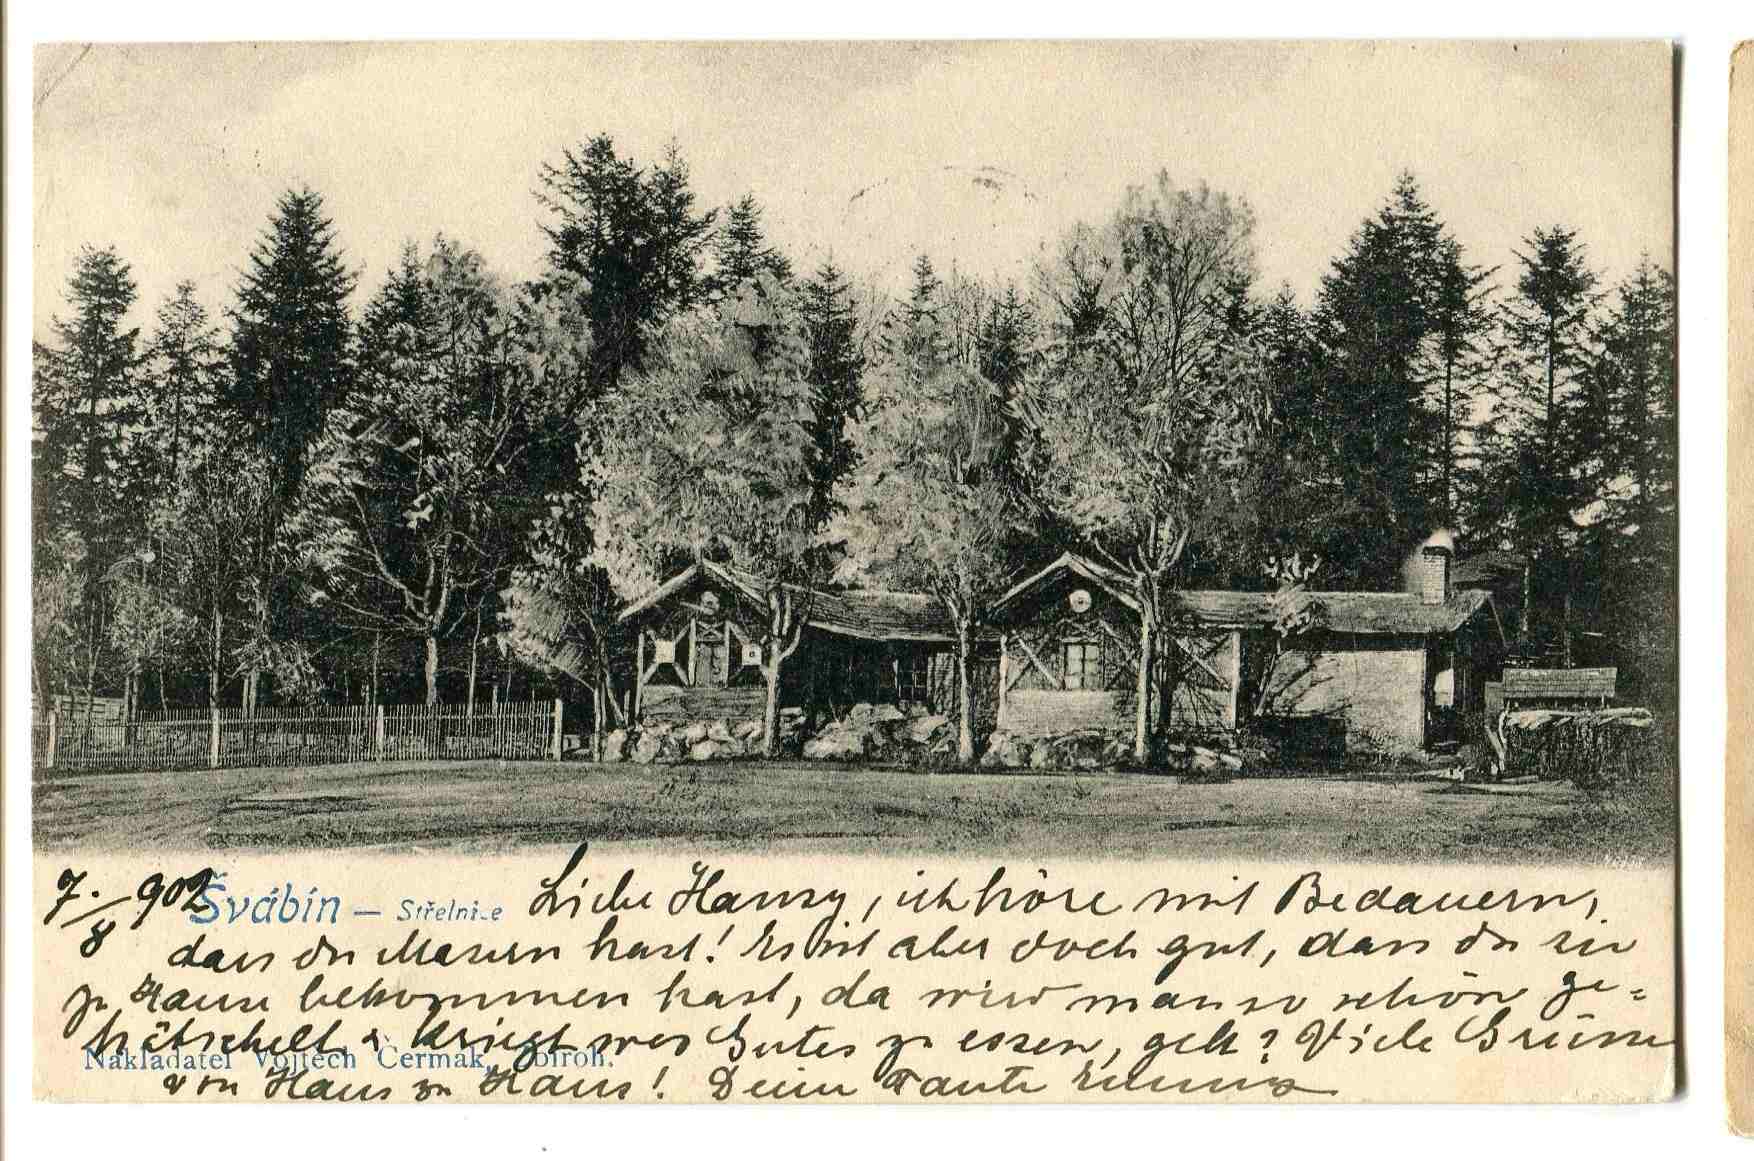 7./8 902
Švábín – Střelnice
Liebe Hansy, ich höre mit Bedauern,
dass du Masern hast! Es ist aber doch gut, dass du sie
zu Hause bekommen hast, da wird man so schön ge=
hätschelt & kriegt was Gutes zu essen, gelt? Viele Grüsse
Nakladatel Vojtěch Čermák, Zbiroh.
von Haus zu Haus! Deine Tante